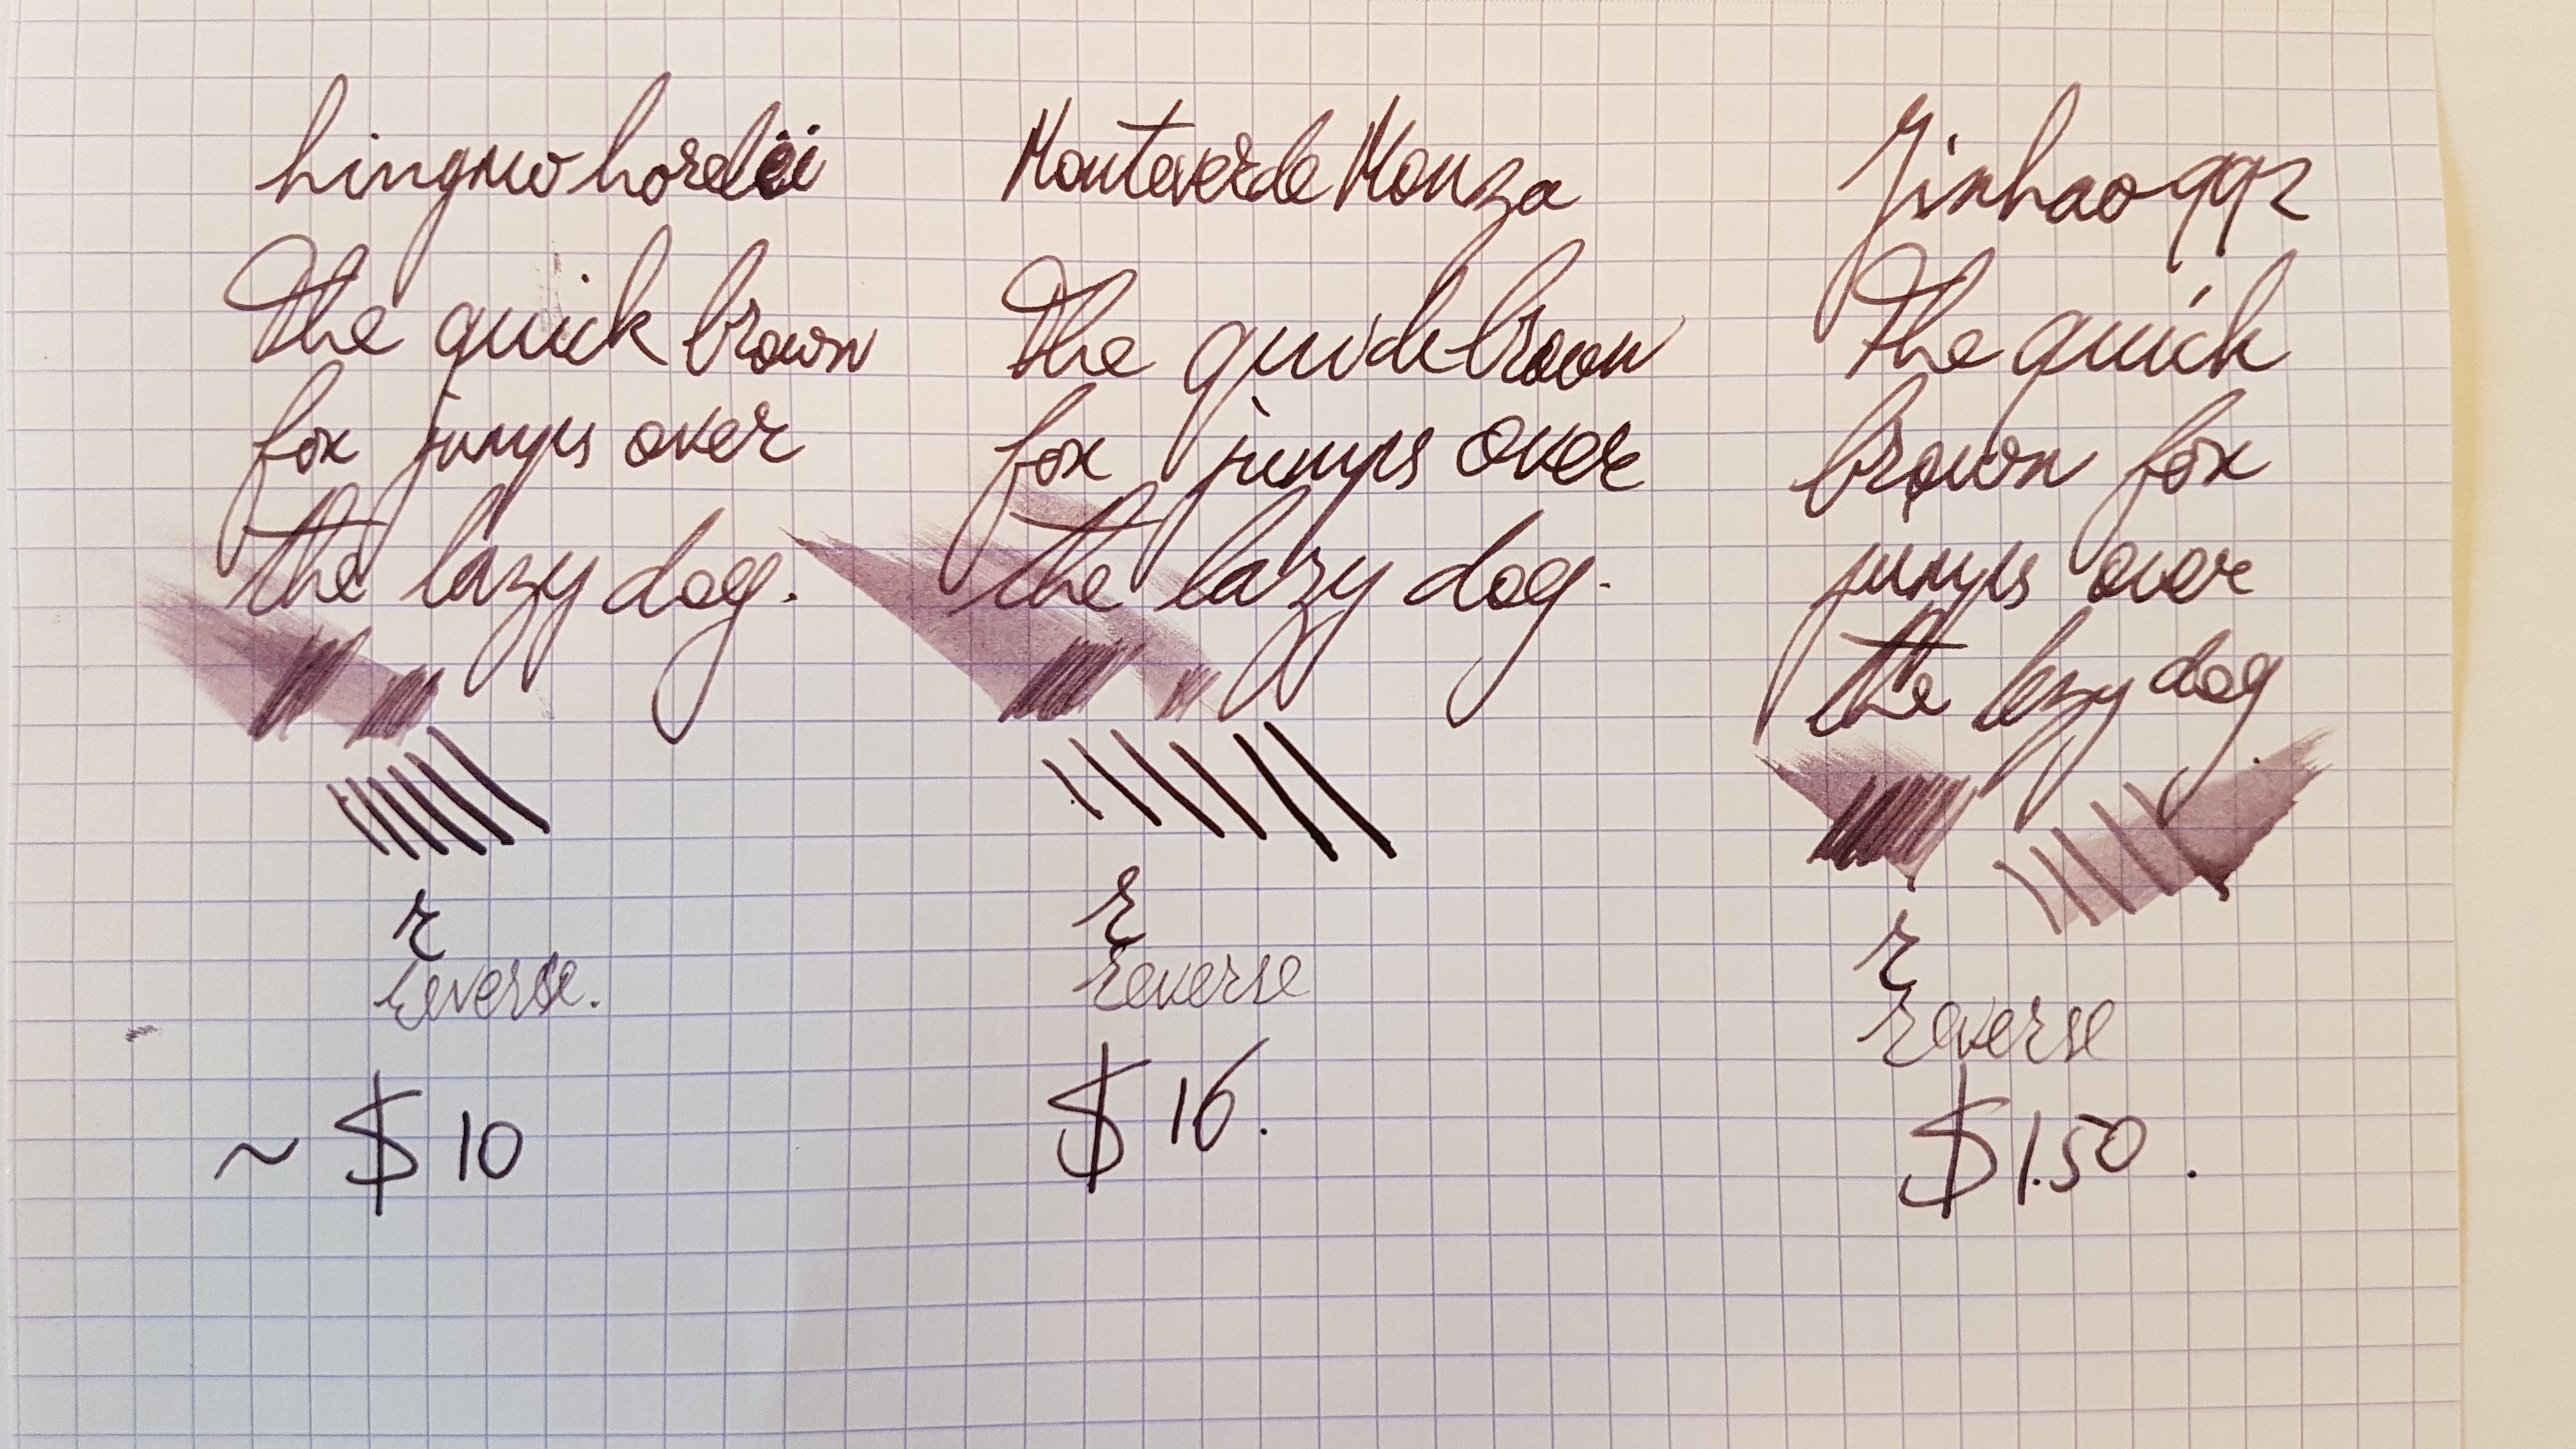 Lingmo Lorelei
The quick brown
fox jumps over
the lazy dog.
r
reverse.
~ $ 10
Monteverde Monza
The quick brown
fox jumps over
the lazy dog.
r
reverse
$ 16.
Jinhao 992
The quick
brown fox
jumps over
the lazy dog
r
reverse
$ 1.50.